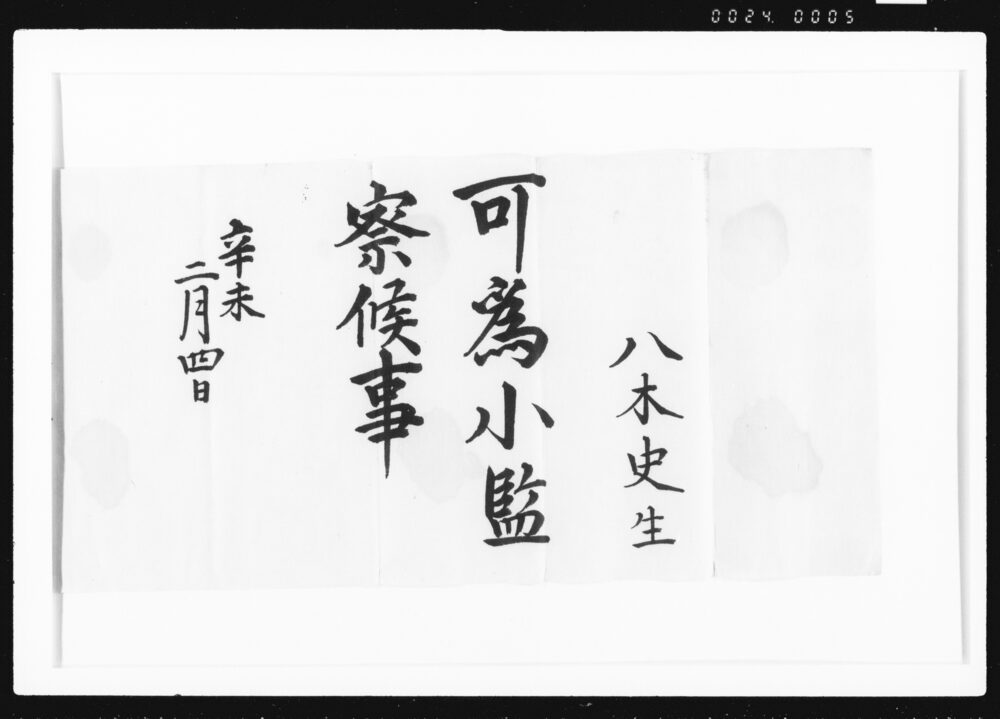 0024. 0005
八木史生
可為小監
察候事
辛未
二月四日